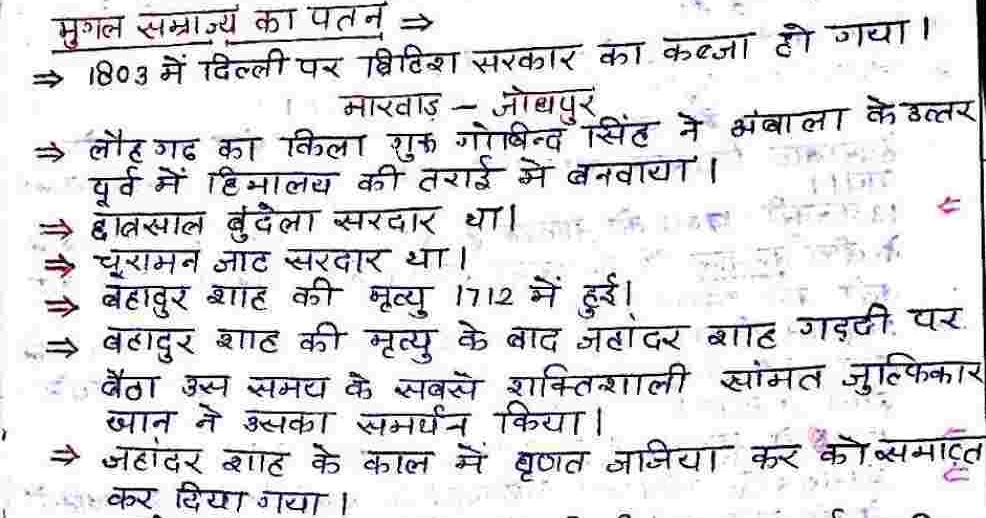 मुगल सम्राज्य का पतन ⇒
⇒ 1803 में दिल्ली पर ब्रिटिश सरकार का कब्जा हो गया।
मारवाड़ - जोधपुर
⇒ लौहगढ का किला गुरू गोबिन्द सिंह ने अंबाला के उत्तर
पूर्व में हिमालय की तराई में बनवाया।
⇒ छत्रसाल बुंदेला सरदार था।
⇒ चूरामन जाट सरदार था।
⇒ बहादुर शाह की मृत्यु 1712 में हुई।
⇒ बहादुर शाह की मृत्यु के बाद जहांदर शाह गद्दी पर
बैठा उस समय के सबसे शक्तिशाली सांमत जुल्फिकार
खान ने उसका समर्थन किया।
⇒ जहांदर शाह के काल में घृणत जजिया कर को समाप्त
कर दिया गया।